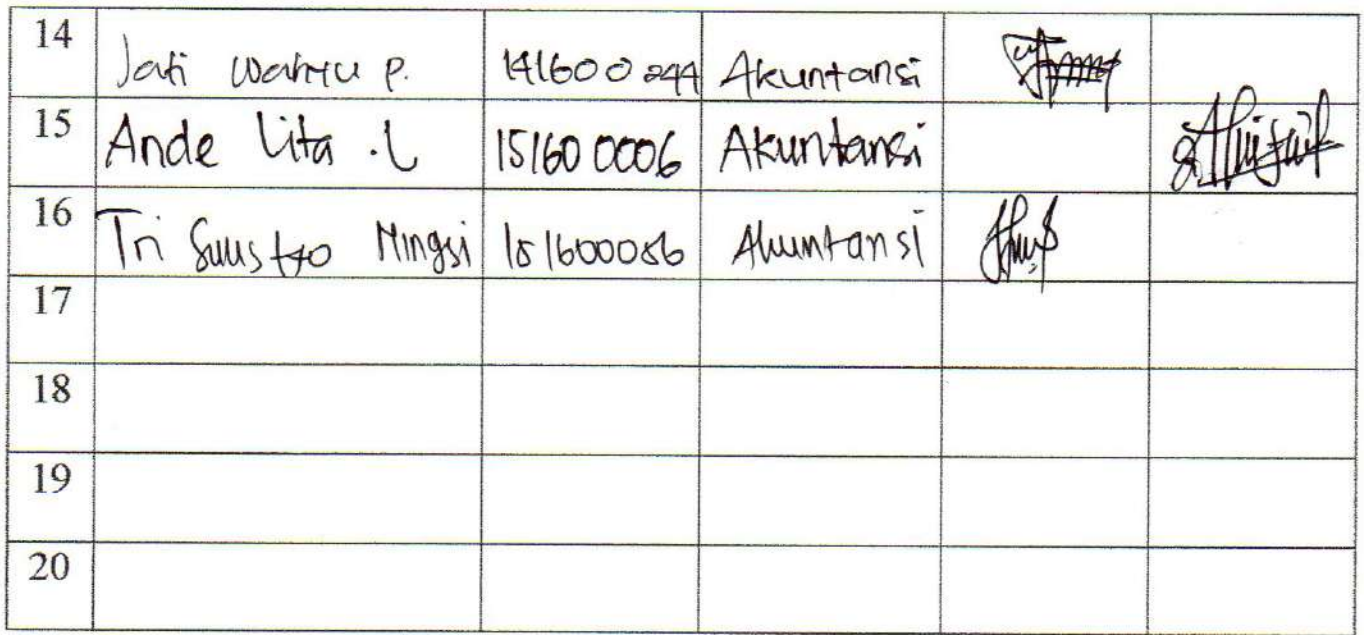 14 Jati Wahyu P. 141600244 Akuntansi
15 Ande Lita .L 151600006 Akuntansi
16 Tri Ningsi Akuntansi
17
18
19
20